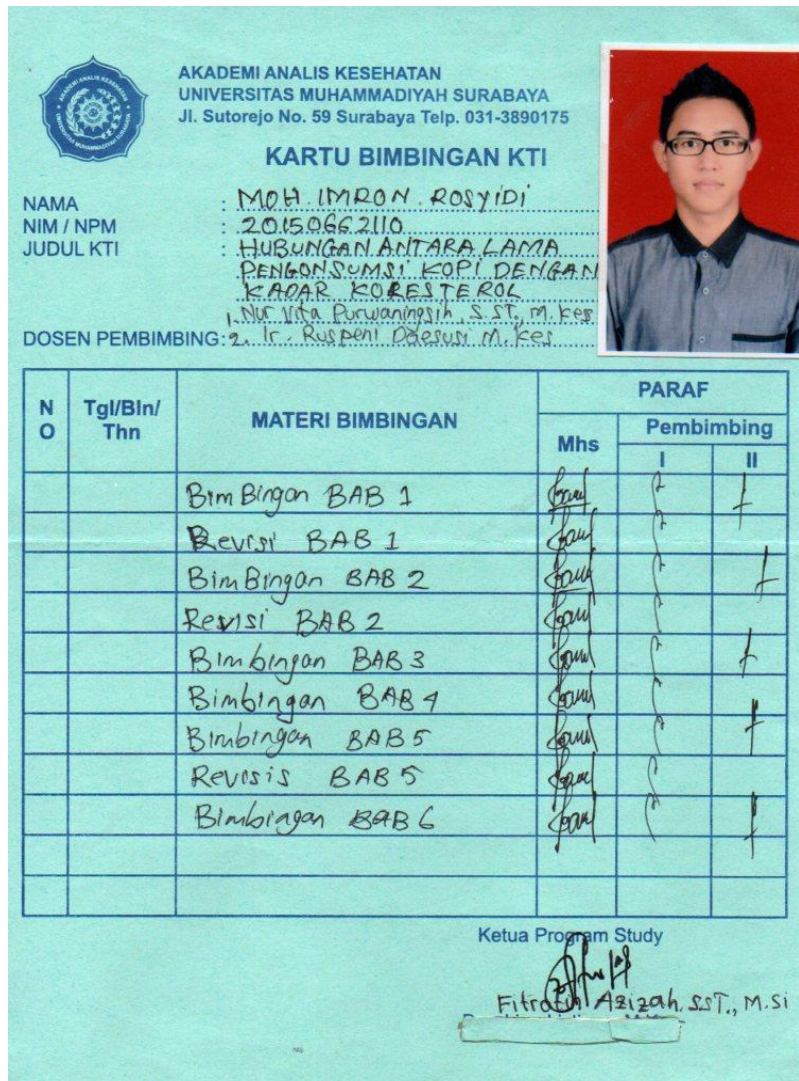 AKADEMI ANALIS KESEHATAN
UNIVERSITAS MUHAMMADIYAH SURABAYA
Jl. Sutorejo No. 59 Surabaya Telp. 031-3890175
KARTU BIMBINGAN KTI
NAMA : MOH. IMRON. ROSYIDI
NIM / NPM : 20150662110
JUDUL KTI : HUBUNGAN ANTARA LAMA
PENGONSUMSI KOPI DENGAN
KADAR KORESTEROL
1. Nur Vita Purwaningsih, S.ST., M.Kes
DOSEN PEMBIMBING: 2. Ir. Ruspeni Daesusi M.Kes
NO Tgl/Bln/Thn MATERI BIMBINGAN PARAF
Mhs Pembimbing
I II
BimBingan BAB 1
Revisi BAB 1
BimBingan BAB 2
Revisi BAB 2
Bimbingan BAB 3
Bimbingan BAB 4
Bimbingan BAB 5
Revisis BAB 5
Bimbingan BAB 6
Ketua Program Study
Fitrotin Azizah, SST., M.Si